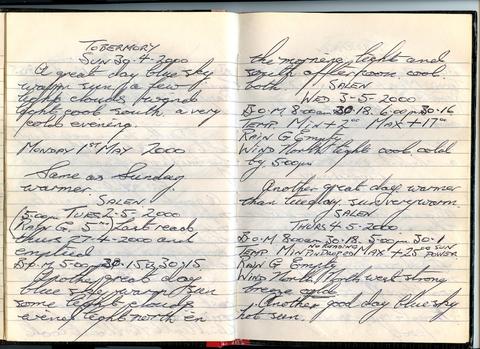 TOBERMORY
SUN 30.4.2000
A great day blue sky
warm sun, a few
light clouds, wind
light cool south a very
cold evening.
MONDAY 1ST MAY 2000
Same as Sunday
warmer.
SALEN
5:00pm TUES 2-5-2000
RAIN G. 5 last read
thurs 27-4-2000 and
emptied
B.O.M 5:00pm 30.15 30.15
Another great day
blue sky warm sun
some light clouds
wind light north in
the morning, light and
south afternoon cool
both. SALEN
WED 3-5-2000
B.O.M 8:00am 30.18. 6:00pm 30.16
TEMP. MIN + 7°° MAX + 17°°
RAIN G Empty
WIND North light cool, cold
by 5:00pm
Another great day, warmer
than tuesday. sun very warm.
SALEN
THURS 4-5-2000
B.O.M 8:00am 30.18. 5:00pm 30.1
TEMP. MIN NO READING MAX + 23°° SUN POWER
RAIN G Empty
WIND North, North west strong
breeze cold
Another good day blue sky
hot sun.